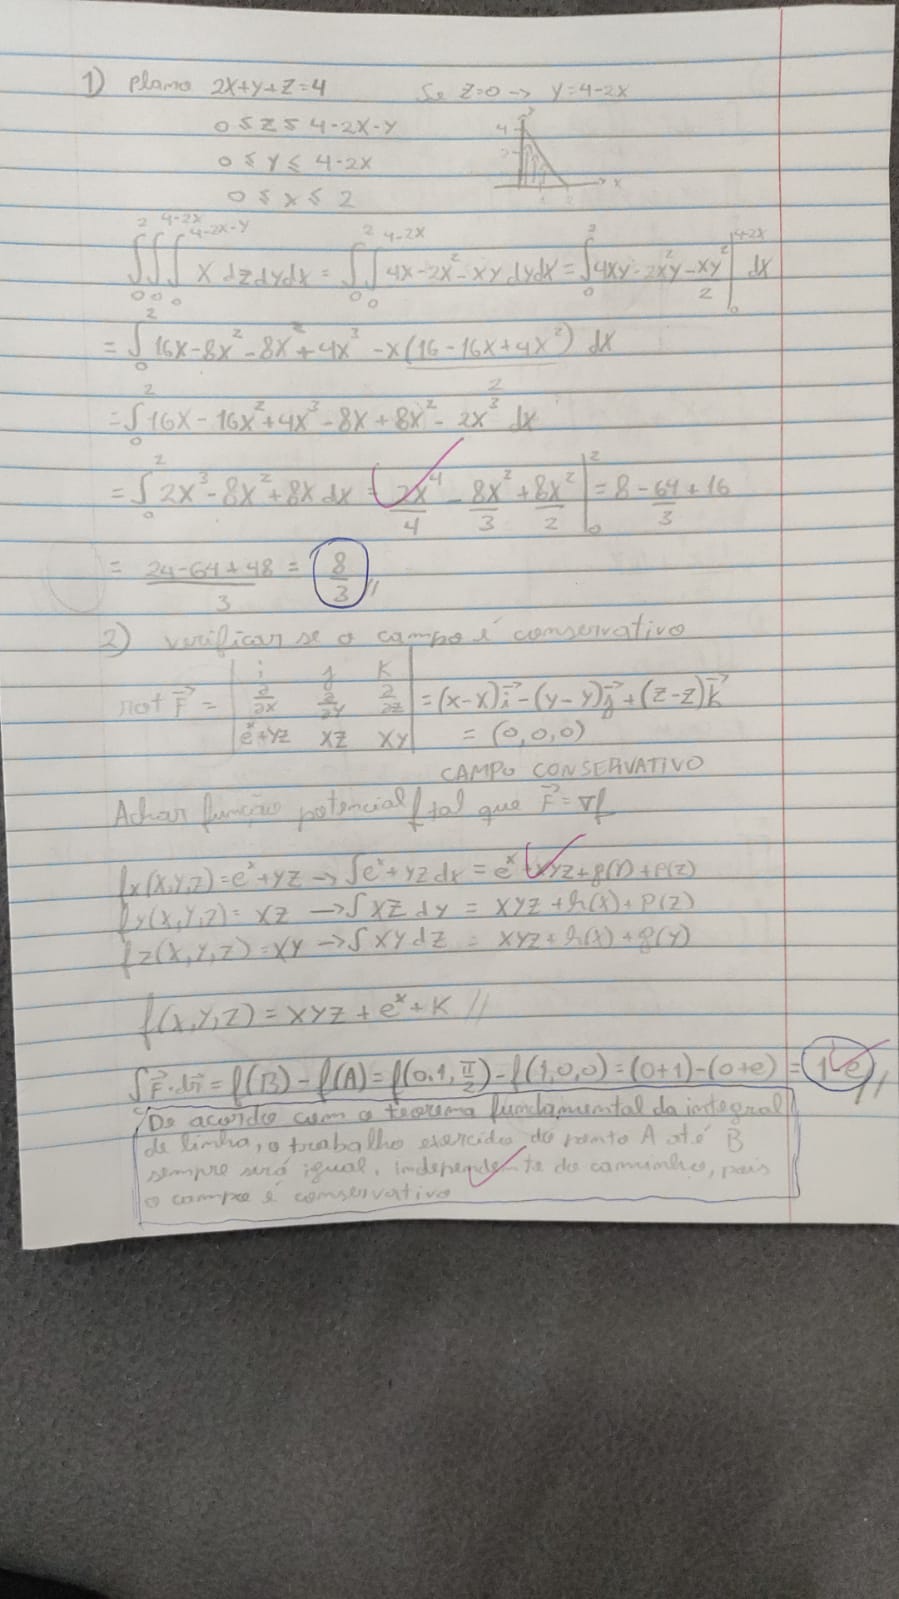 1) Plano 2x+y+z=4 Se z=0 → y=4-2x
0 ≤ z ≤ 4-2x-y
0 ≤ y ≤ 4-2x
0 ≤ x ≤ 2
∫₀² ∫₀^(4-2x) ∫₀^(4-2x-y) x dzdydx = ∫₀² ∫₀^(4-2x) 4x-2x²-xy dydx = ∫₀² 4xy-2x²y-xy²/2 |₀^(4-2x) dx
= ∫₀² 16x-8x²-8x²+4x³ -x(16-16x+4x²)/2 dx
= ∫₀² 16x-16x²+4x³-8x+8x²-2x³ dx
= ∫₀² 2x³-8x²+8x dx = 2x⁴/4 - 8x²/3 + 8x²/2 |₀² = 8 - 64/3 + 16
= (24-64+48)/3 = 8/3 //
2) verificar se o campo é conservativo
rot F⃗ = | i j k ; ∂/∂x ∂/∂y ∂/∂z ; eˣ+yz xz xy | = (x-x)i⃗ -(y-y)j⃗ +(z-z)k⃗
= (0,0,0)
CAMPO CONSERVATIVO
Achar função potencial f tal que F⃗=∇f
fx(x,y,z)=eˣ+yz → ∫eˣ+yz dx = eˣ+xyz+g(y)+p(z)
fy(x,y,z)= xz → ∫xz dy = xyz+h(x)+p(z)
fz(x,y,z)=xy → ∫xy dz = xyz+h(x)+g(y)
f(x,y,z)= xyz+eˣ+k //
∫F⃗·dr⃗ = f(B)-f(A)= f(0,1,π/2)-f(1,0,0)=(0+1)-(0+e) = 1-e //
De acordo com o teorema fundamental da integral
de linha, o trabalho exercido do ponto A até B
sempre será igual, independente do caminho, pois
o campo é conservativo